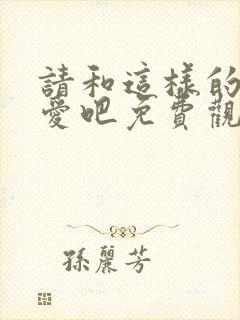 請和這樣的
愛吧免費觀
孫麗芳